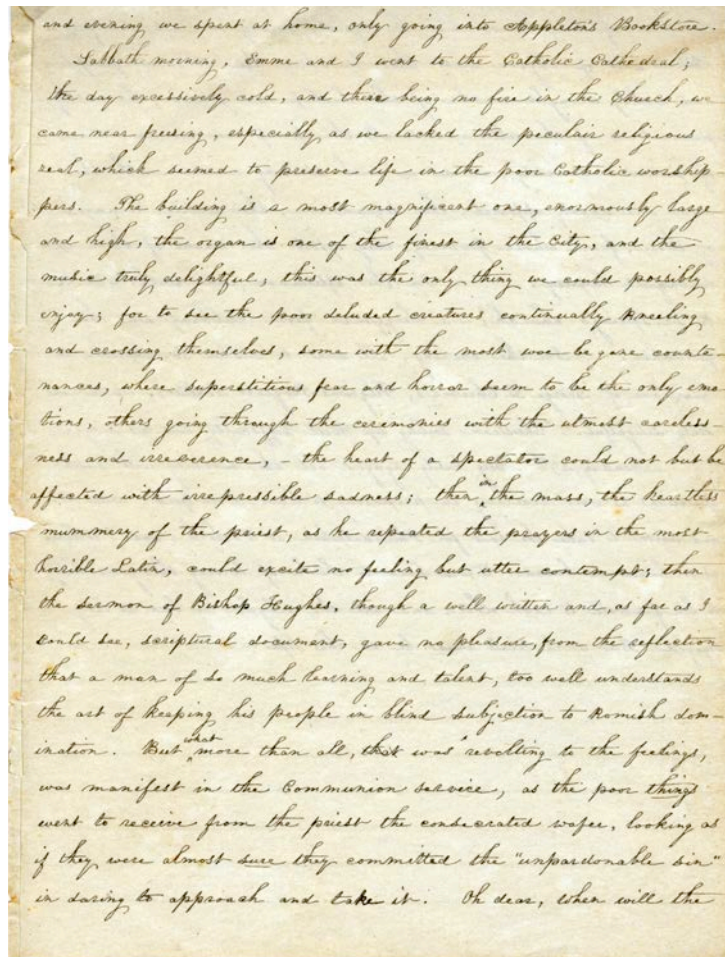 and evening we spent at home, only going into Appleton's Bookstore.
Sabbath morning, Emme and I went to the Catholic Cathedral;
the day excessively cold, and there being no fire in the Church, we
came near freezing, especially as we lacked the peculair religious
zeal, which seemed to preserve life in the poor Catholic worship-
pers. The building is a most magnificent one, enormously large
and high, the organ is one of the finest in the City, and the
music truly delightful; this was the only thing we could possibly
enjoy; for to see the poor deluded creatures continually kneeling
and crossing themselves, some with the most woe be gone counte-
nances, where superstitious fear and horror seem to be the only emo
tions, others going through the ceremonies with the utmost careless-
ness and irreverence, - the heart of a spectator could not but be
affected with irrepressible sadness; then in the mass, the heartless
mummery of the priest, as he repeated the prayers in the most
horrible Latin, could excite no feeling but utter contempt; then
the sermon of Bishop Hughes, though a well written and, as far as I
could see, scriptural document, gave no pleasure, from the reflection
that a man of so much learning and talent, too well understands
the art of keeping his people in blind subjection to Romish dom-
ination. But what more than all, that was revolting to the feelings,
was manifest in the Communion service, as the poor things
went to receive from the priest the consecrated wafer, looking as
if they were almost sure they committed the "unpardonable sin"
in daring to approach and take it. Oh dear, when will the